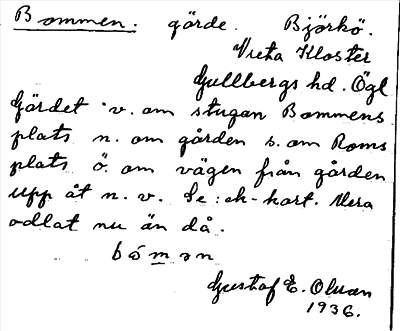 Bommen. gärde. Björkö.
Vreta Kloster
Gullbergs hd. Ögl
Gärdet v. om stugan Bommens
plats n. om gården s. om Roms
plats ö. om vägen från gården
upp åt n. v. Se: ek-kart. Mera
odlat nu än då.
bómən
Gustaf E. Olsson
1936.